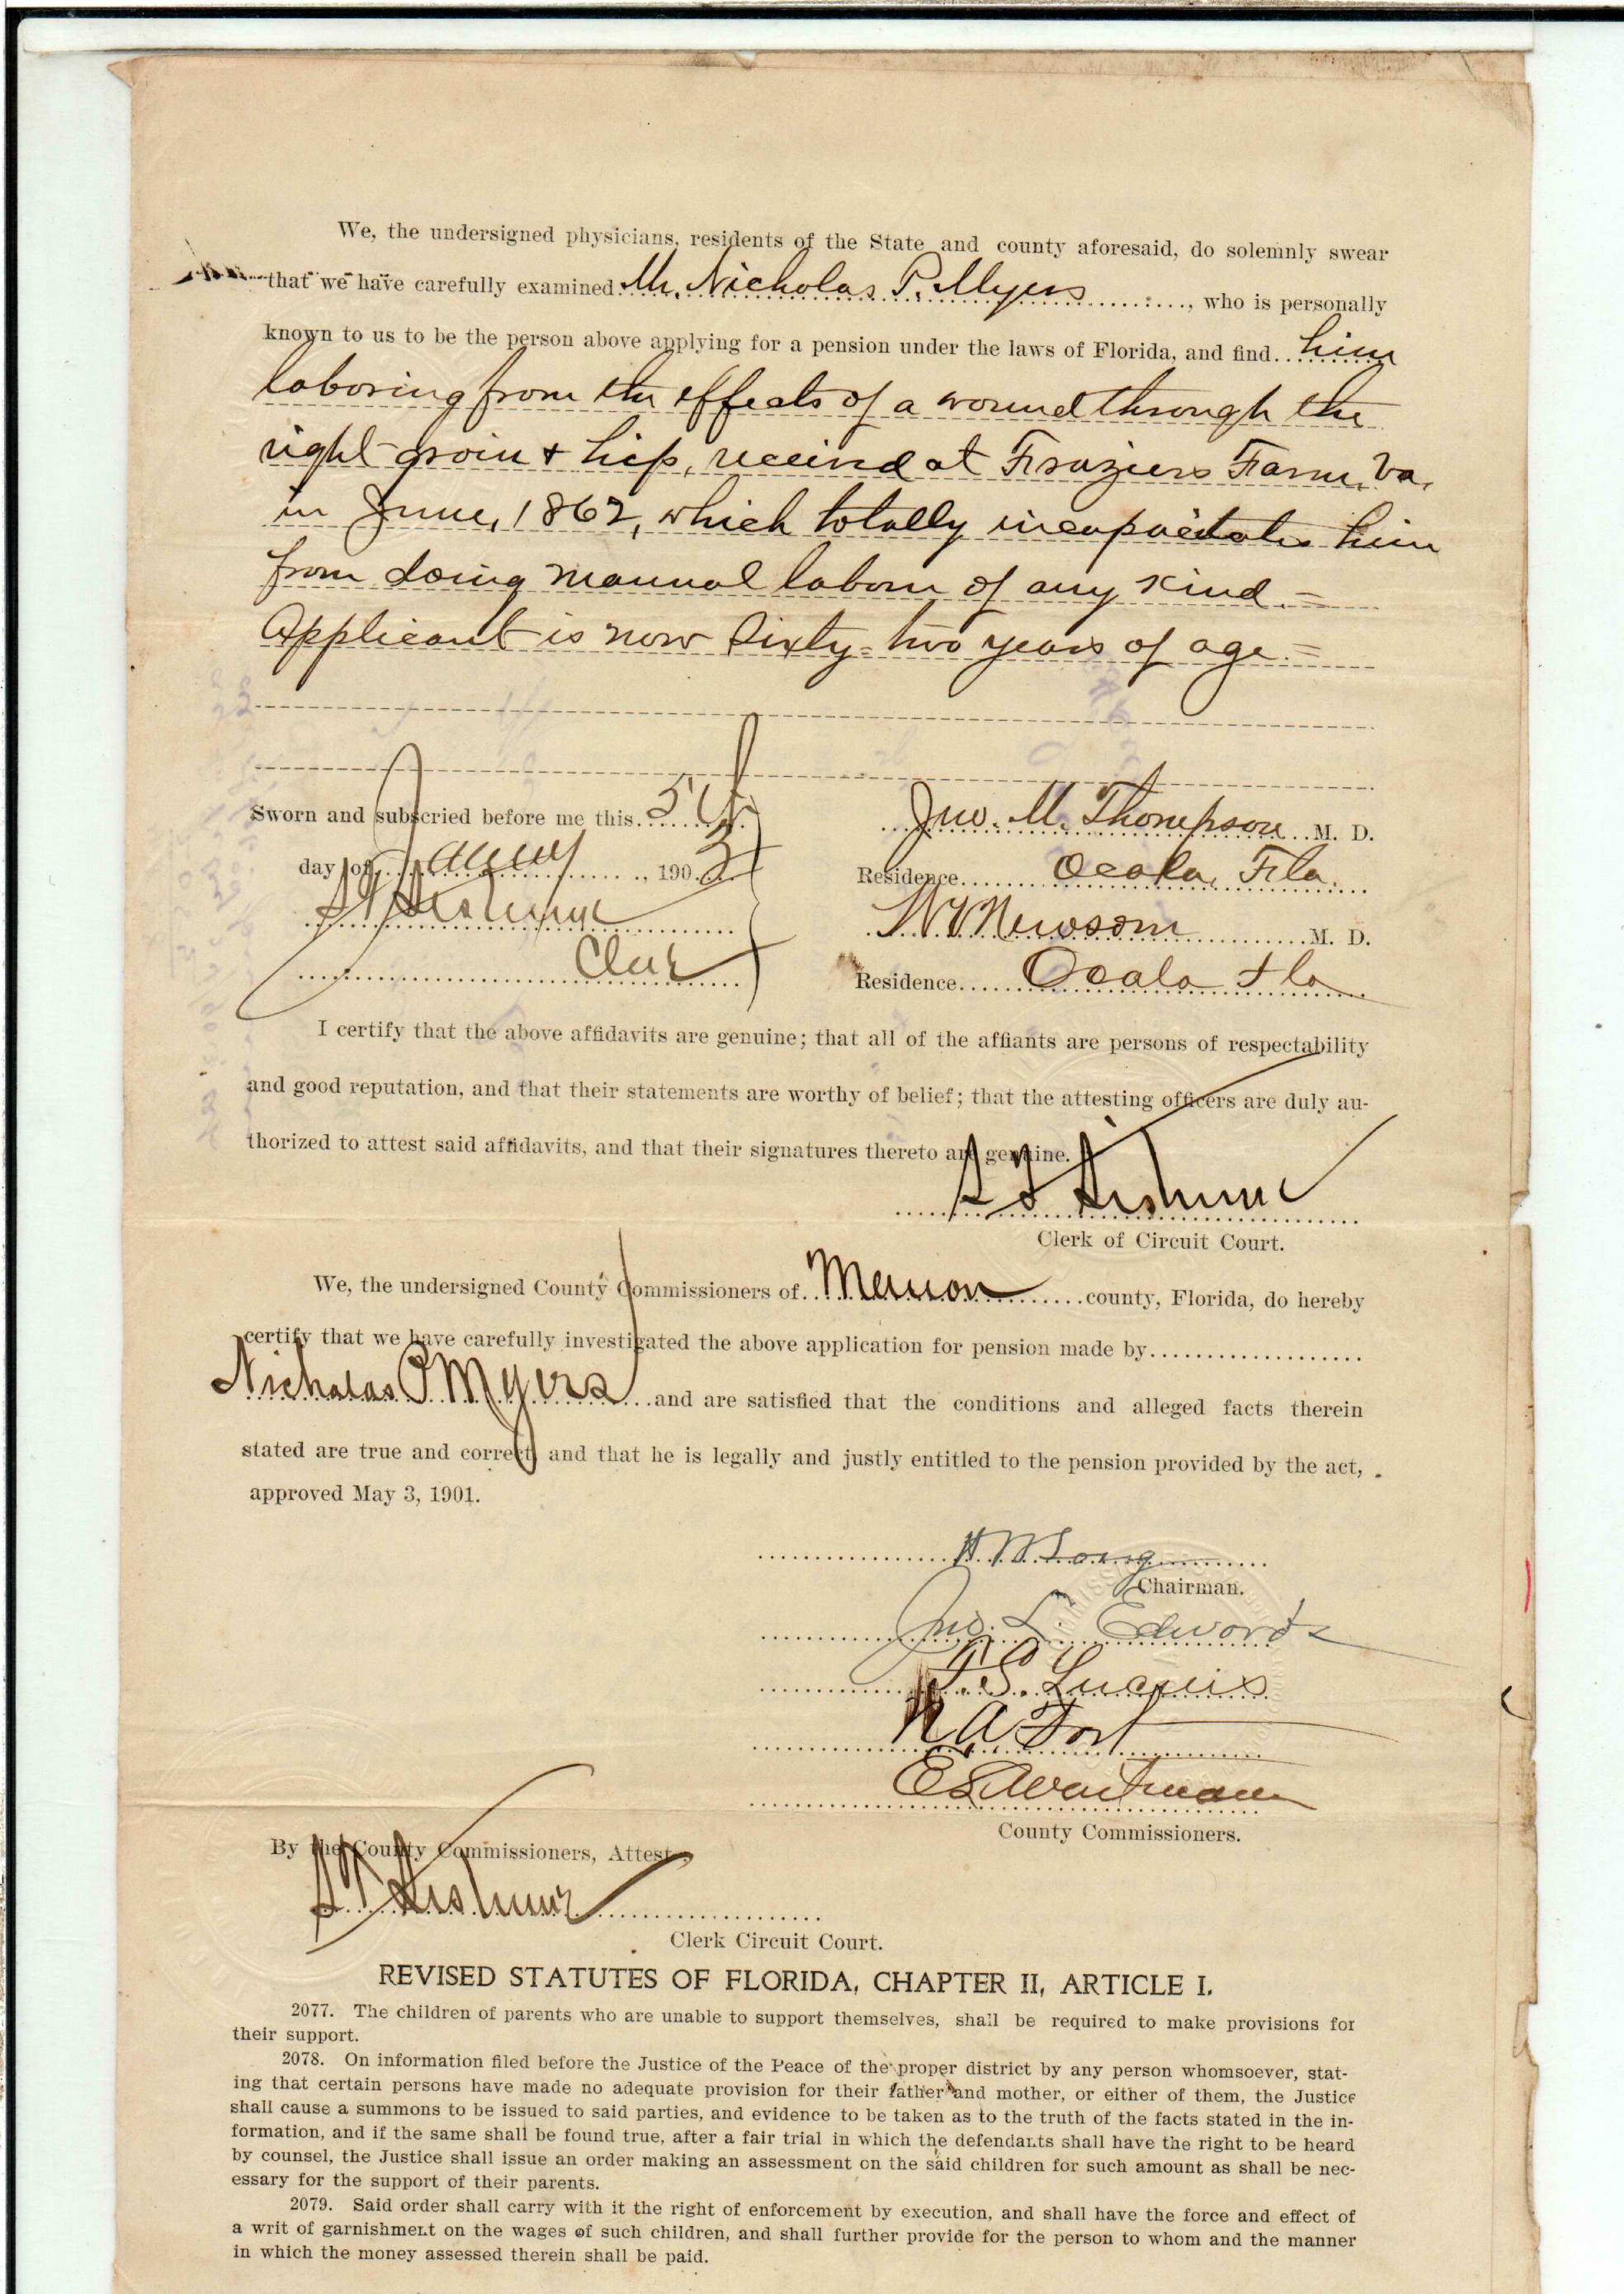 We, the undersigned physicians, residents of the State and county aforesaid, do solemnly swear
that we have carefully examined Mr. Nicholas P. Myers, who is personally
known to us to be the person above applying for a pension under the laws of Florida, and find him
laboring from the effects of a wound through the
right groin & hip, received at Fraziers Farm, Va.
in June, 1862, which totally incapacitates him
from doing manual labor of any kind.=
Applicant is now Sixty=two years of age.=
Sworn and subscried before me this 5th
Jno. M. Thompson M. D.
day of, 1903
Residence Ocala, Fla.
W V Newsom M. D.
Clerk
Residence Ocala Fla
I certify that the above affidavits are genuine; that all of the affiants are persons of respectability
and good reputation, and that their statements are worthy of belief; that the attesting officers are duly au-
thorized to attest said affidavits, and that their signatures thereto are genuine.
Clerk of Circuit Court.
We, the undersigned County Commissioners of Marion county, Florida, do hereby
certify that we have carefully investigated the above application for pension made by
Nicholas P Myers and are satisfied that the conditions and alleged facts therein
stated are true and correct, and that he is legally and justly entitled to the pension provided by the act,
approved May 3, 1901.
H M Long
Chairman.
Jno. L. Edwards
N A Fort
County Commissioners.
By the County Commissioners, Attest
Clerk Circuit Court.
REVISED STATUTES OF FLORIDA, CHAPTER II, ARTICLE I.
2077. The children of parents who are unable to support themselves, shall be required to make provisions for
their support.
2078. On information filed before the Justice of the Peace of the proper district by any person whomsoever, stat-
ing that certain persons have made no adequate provision for their father and mother, or either of them, the Justice
shall cause a summons to be issued to said parties, and evidence to be taken as to the truth of the facts stated in the in-
formation, and if the same shall be found true, after a fair trial in which the defendants shall have the right to be heard
by counsel, the Justice shall issue an order making an assessment on the said children for such amount as shall be nec-
essary for the support of their parents.
2079. Said order shall carry with it the right of enforcement by execution, and shall have the force and effect of
a writ of garnishment on the wages of such children, and shall further provide for the person to whom and the manner
in which the money assessed therein shall be paid.